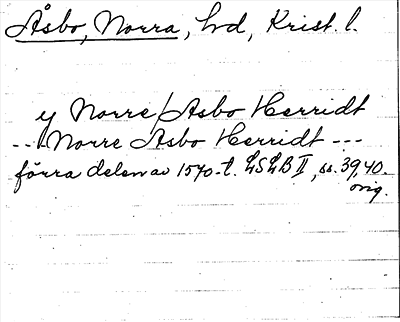 Åsbo, Norra, hd, Krist. l.
y Norre/Asbo Herridt
--- Norre Asbo Herridt ---
förra delen av 1540-t. LSLB II, ss. 39, 40.
orig.